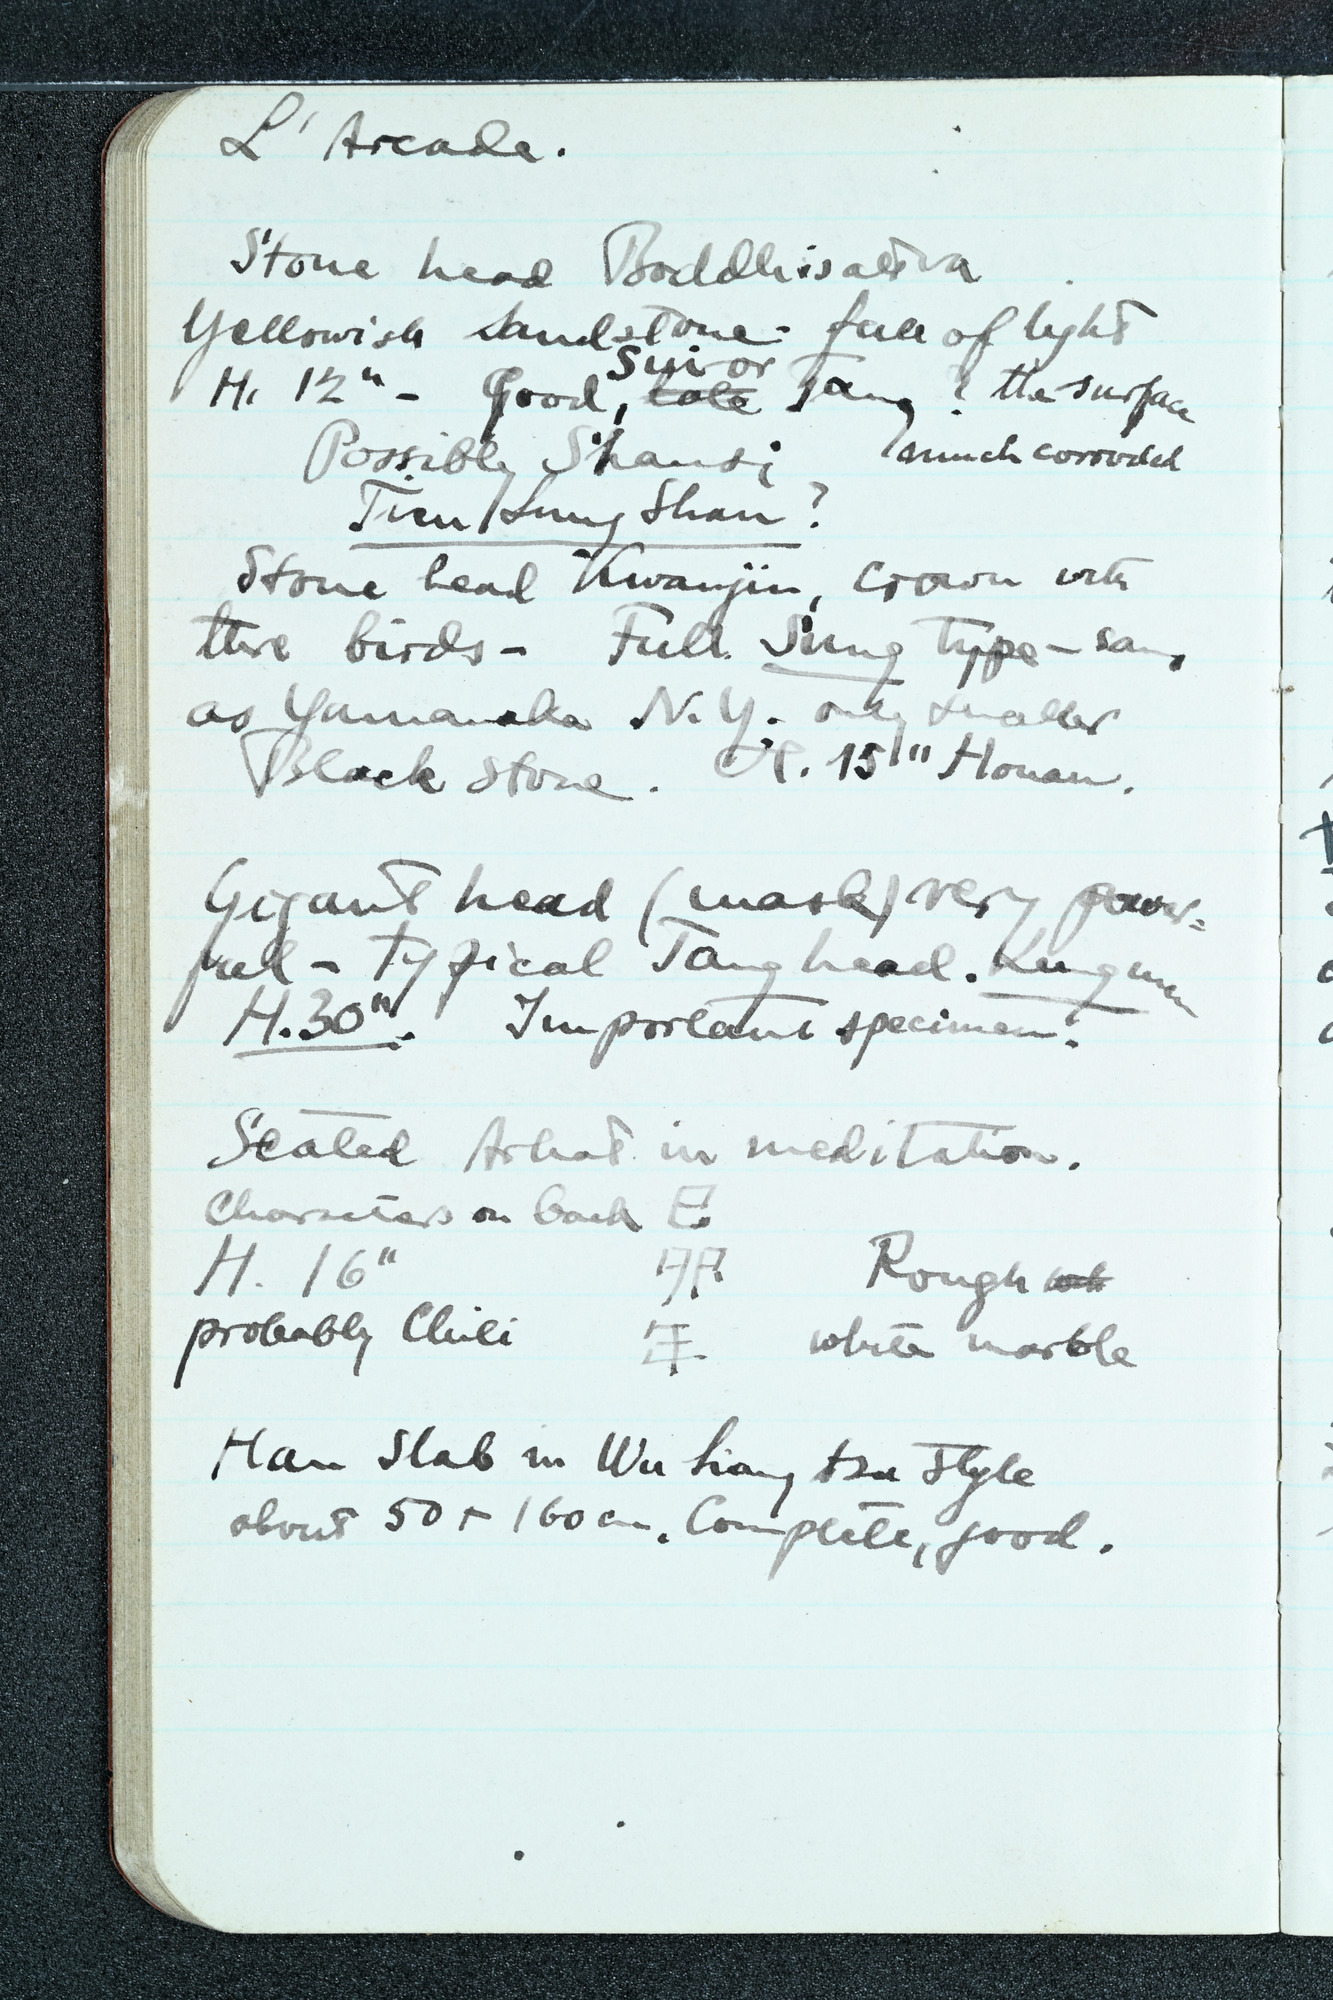 L'Arcade.
Stone head Boddhisattva
Yellowish sandstone - full of light
H. 12" - Good, late Sui or Tang ? the surface
Possibly Shansi much corroded
Tien Lung Shan?
Stone head Kwanjin, crown with
three birds - Full Sung type - same
as Yamanaka N.Y. only smaller
Black stone. H. 15" Honan.
Gigant head (mask) very power=
ful - typical Tang head. Lungmen
H. 30". Important specimen!
Seated Arhat in meditation.
Characters on back
H. 16" Rough
probably Chili white marble
Han Slab in Wu Liang tzu style
about 50 + 160 cm. Complete, good.